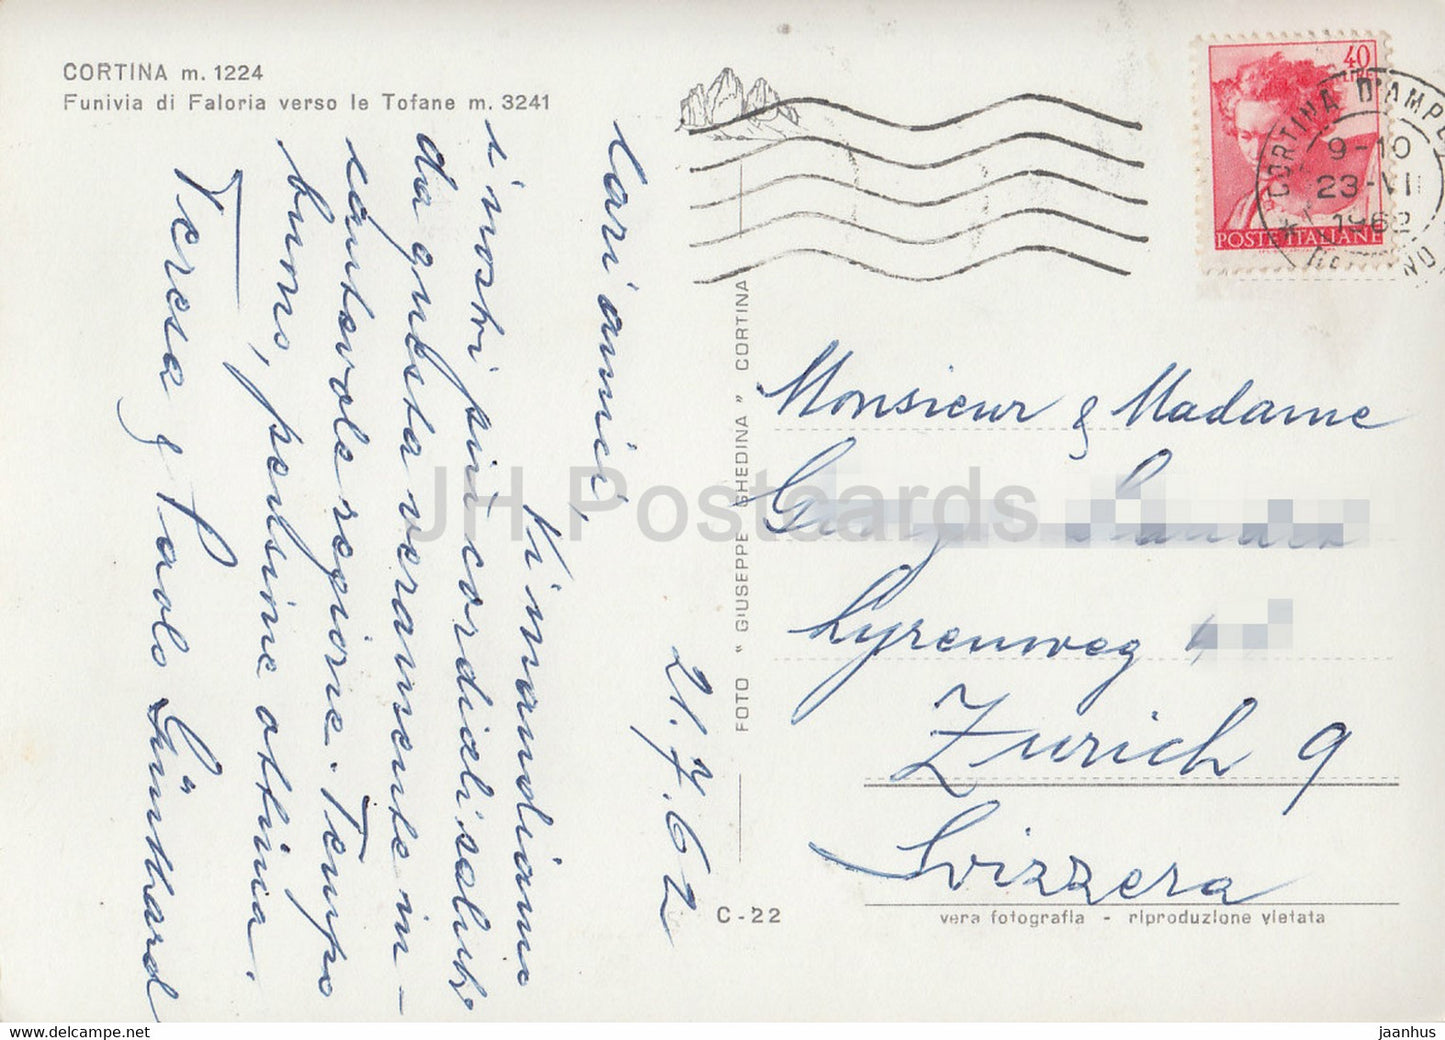 CORTINA m. 1224
Funivia di Faloria verso le Tofane m. 3241
40
LIRE
POSTE ITALIANE
CORTINA D'AMPE
9-10
23-VII
1962
21.7.62
Cari amici,
Vi mandiamo
i nostri più cordiali saluti
da questa veramente in-
cantevole regione. Tempo
buono, pensione ottima.
Teresa & Paolo Günthard
FOTO " GIUSEPPE GHEDINA " CORTINA
C-22
Monsieur & Madame
Lyrenweg
Zurich 9
Svizzera
vera fotografia - riproduzione vietata
JH Postcards
www.delcampe.net
jaanhus